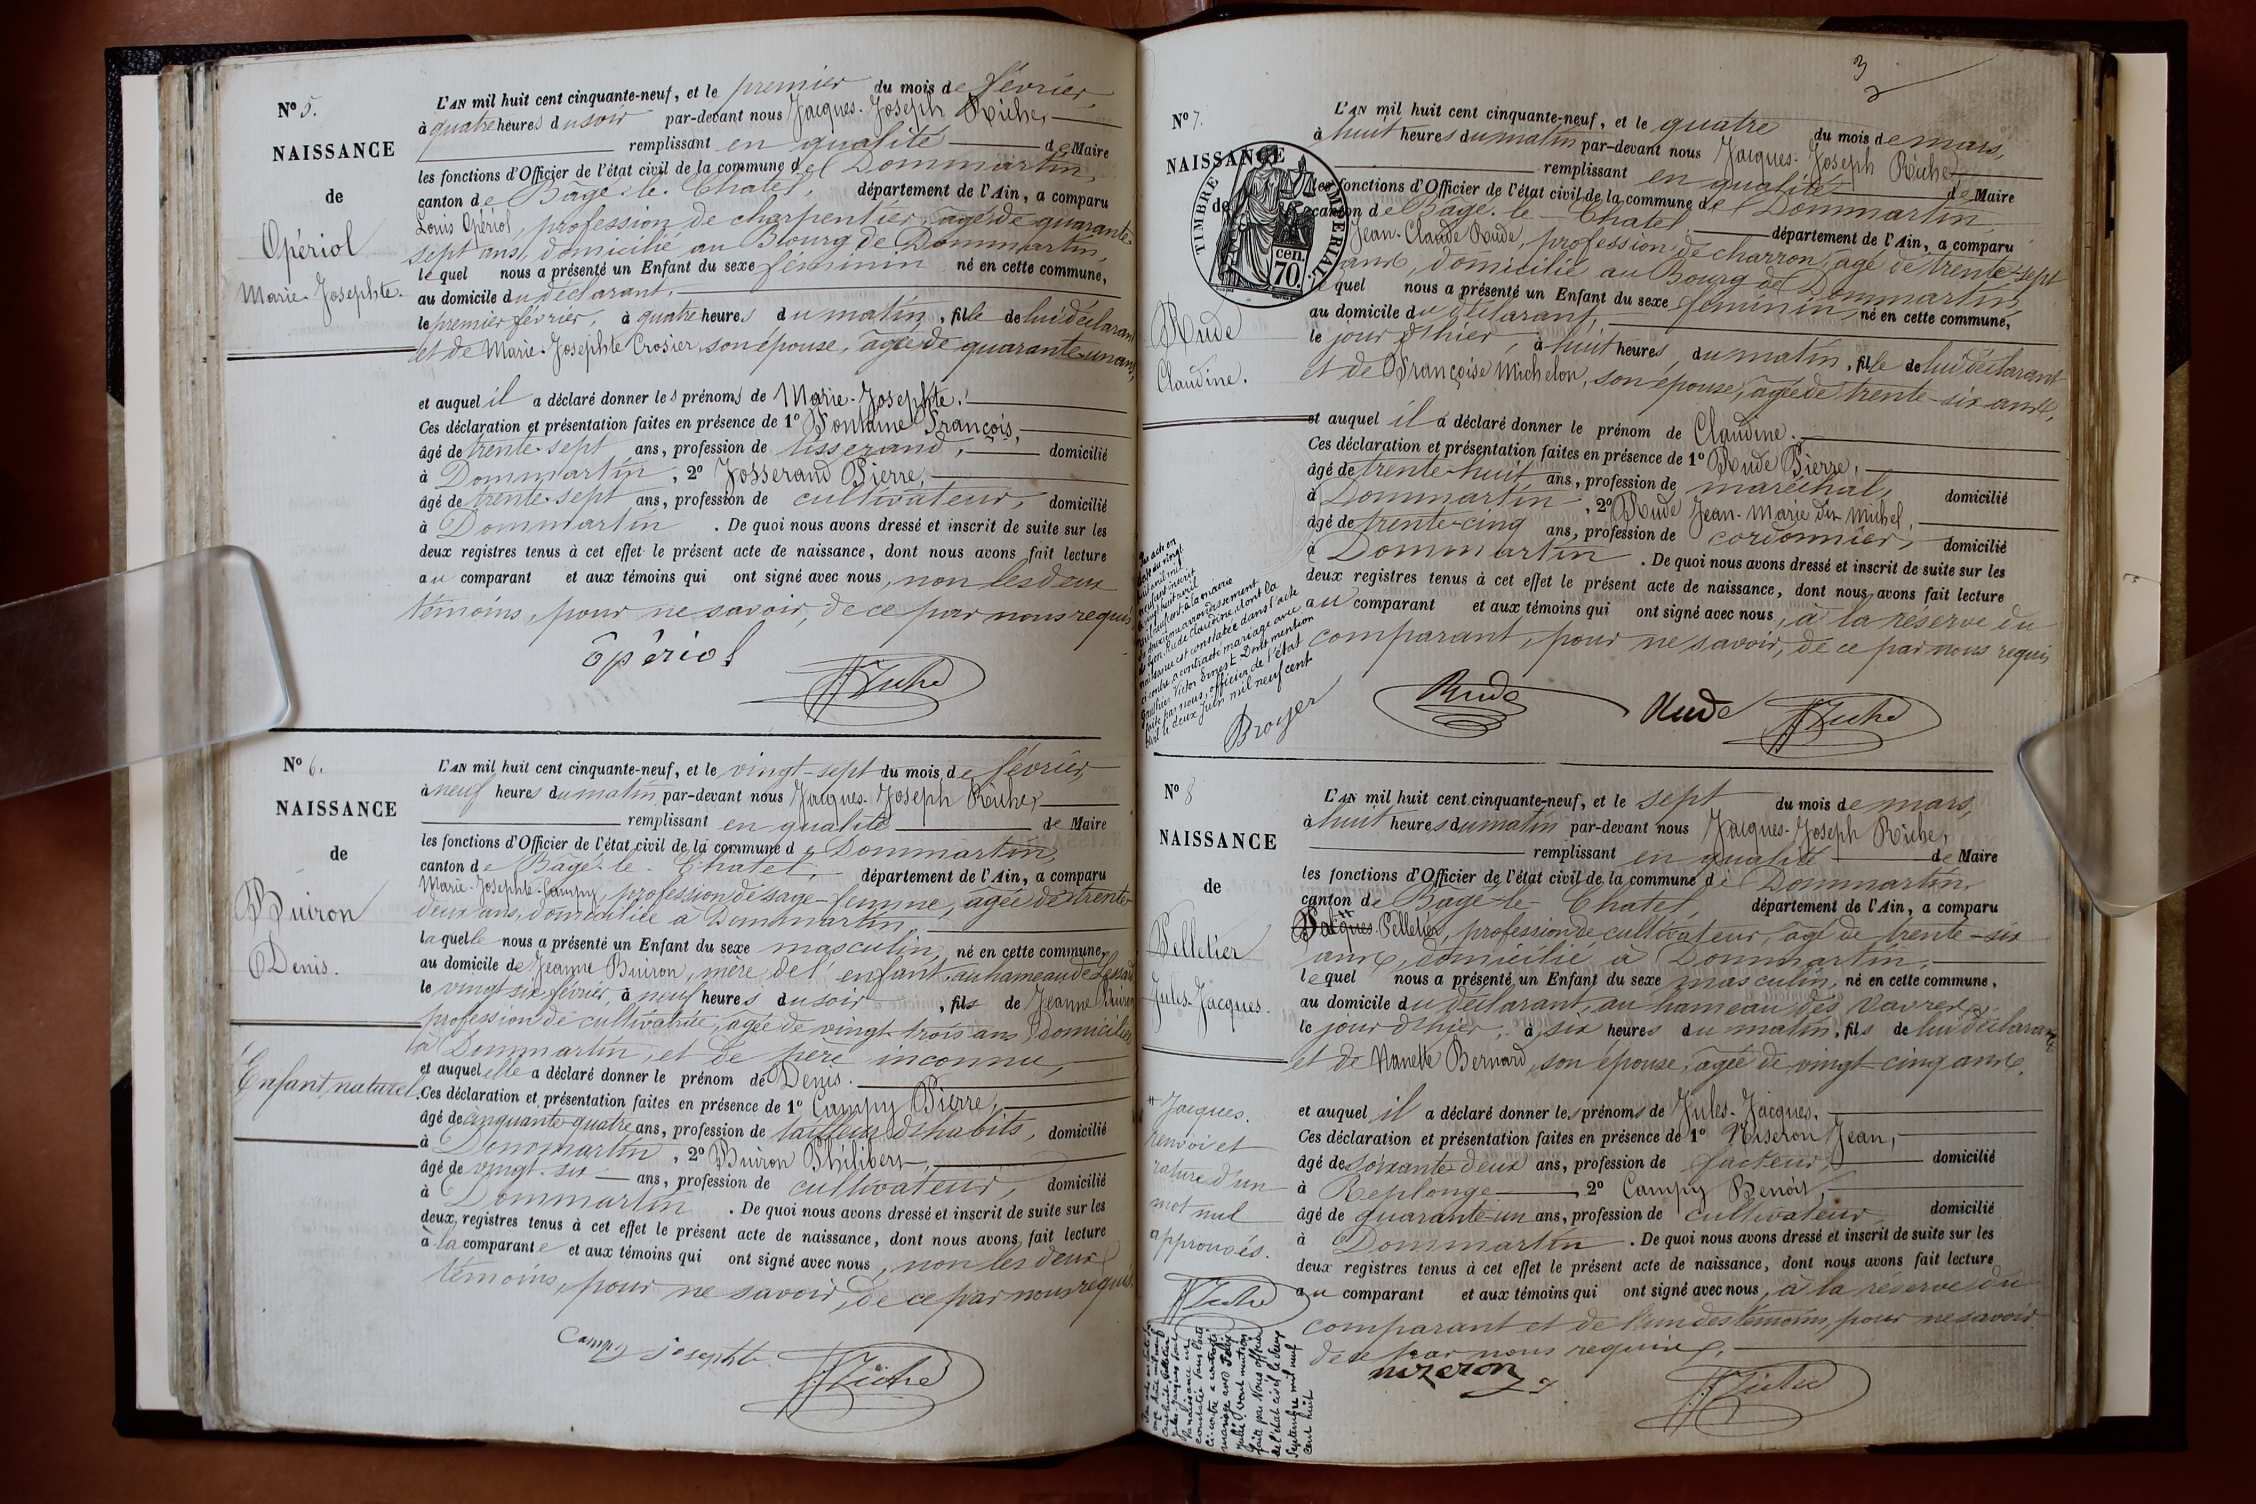 Nº 5.
NAISSANCE
de
Opériol
Marie-Josephte.
L'AN mil huit cent cinquante-neuf, et le premier du mois de février,
à quatre heures du soir par-devant nous Jacques-Joseph Riche,
remplissant en qualité de Maire
les fonctions d'Officier de l'état civil de la commune de Dommartin,
canton de Bâgé-le-Chatel, département de l'Ain, a comparu
Louis Opériol, profession de charpentier, âgé de quarante-
sept ans, domicilié au Bourg de Dommartin,
lequel nous a présenté un Enfant du sexe féminin né en cette commune,
au domicile du déclarant,
le premier février, à quatre heures du matin, fille de lui déclarant
et de Marie-Josephte Crosier, son épouse, âgée de quarante-un ans,
et auquel il a déclaré donner les prénoms de Marie-Josephte.
Ces déclaration et présentation faites en présence de 1º Fontaine François,
âgé de trente-sept ans, profession de tisserand, domicilié
à Dommartin, 2º Josserand Pierre,
âgé de trente-sept ans, profession de cultivateur, domicilié
à Dommartin. De quoi nous avons dressé et inscrit de suite sur les
deux registres tenus à cet effet le présent acte de naissance, dont nous avons fait lecture
au comparant et aux témoins qui ont signé avec nous, non les deux
témoins, pour ne savoir, de ce par nous requis
Opériol
Nº 6.
NAISSANCE
de
Buiron
Denis.
Enfant naturel.
L'AN mil huit cent cinquante-neuf, et le vingt-sept du mois de février
à neuf heures du matin par-devant nous Jacques-Joseph Riche,
remplissant en qualité de Maire
les fonctions d'Officier de l'état civil de la commune de Dommartin,
canton de Bâgé-le-Chatel, département de l'Ain, a comparu
Marie-Josephte Campy, profession de sage-femme, âgée de trente-
deux ans, domiciliée à Dommartin,
laquelle nous a présenté un Enfant du sexe masculin, né en cette commune,
au domicile de Jeanne Buiron, mère de l'enfant, au hameau de
le vingt-six février, à neuf heures du soir, fils de Jeanne Buiron
profession de cultivatrice, âgée de vingt-trois ans, domiciliée
à Dommartin, et de père inconnu,
et auquel elle a déclaré donner le prénom de Denis.
Ces déclaration et présentation faites en présence de 1º Campy Pierre,
âgé de cinquante-quatre ans, profession de tailleur d'habits, domicilié
à Dommartin, 2º Buiron Philibert,
âgé de vingt-six ans, profession de cultivateur, domicilié
à Dommartin. De quoi nous avons dressé et inscrit de suite sur les
deux registres tenus à cet effet le présent acte de naissance, dont nous avons fait lecture
à la comparante et aux témoins qui ont signé avec nous, non les deux
témoins, pour ne savoir, de ce par nous requis.
Campy josephte
3
Nº 7.
NAISSANCE
de
Rude
Claudine.
TIMBRE IMPERIAL
cen.
70.
L'AN mil huit cent cinquante-neuf, et le quatre du mois de mars,
à huit heures du matin par-devant nous Jacques-Joseph Riche,
remplissant en qualité de Maire
les fonctions d'Officier de l'état civil de la commune de Dommartin,
canton de Bâgé-le-Chatel, département de l'Ain, a comparu
Jean-Claude Rude, profession de charron, âgé de trente-sept
ans, domicilié au Bourg de Dommartin,
lequel nous a présenté un Enfant du sexe féminin, né en cette commune,
au domicile du déclarant,
le jour d'hier, à huit heures du matin, fille de lui déclarant
et de Françoise Michelon, son épouse, âgée de trente-six ans,
et auquel il a déclaré donner le prénom de Claudine.
Ces déclaration et présentation faites en présence de 1º Rude Pierre,
âgé de trente-huit ans, profession de maréchal, domicilié
à Dommartin, 2º Rude Jean-Marie dit Michel,
âgé de trente-cinq ans, profession de cordonnier, domicilié
à Dommartin. De quoi nous avons dressé et inscrit de suite sur les
deux registres tenus à cet effet le présent acte de naissance, dont nous avons fait lecture
au comparant et aux témoins qui ont signé avec nous, à la réserve du
comparant, pour ne savoir, de ce par nous requis
Par acte en
date du vingt
huit avril mil
neuf cent inscrit
le vingt huit avril
mil neuf cent à la mairie
arrondissement
de Lyon, Rude Claudine dont la
naissance est constatée dans l'acte
ci contre a contracté mariage avec
Gauthier Victor Ernest. Dont mention
faite par nous, officier de l'état
civil le deux Juin mil neuf cent
Broyer
Rude
Rude
Nº 8
NAISSANCE
de
Pelletier
Jules-Jacques.
L'AN mil huit cent cinquante-neuf, et le sept du mois de mars,
à huit heures du matin par-devant nous Jacques-Joseph Riche,
remplissant en qualité de Maire
les fonctions d'Officier de l'état civil de la commune de Dommartin,
canton de Bâgé-le-Chatel, département de l'Ain, a comparu
Pelletier, profession de cultivateur, âgé de trente-six
ans, domicilié à Dommartin,
lequel nous a présenté un Enfant du sexe masculin, né en cette commune,
au domicile du déclarant, au hameau des Vavres,
le jour d'hier, à six heures du matin, fils de lui déclarant
et de Nanette Bernard, son épouse, âgée de vingt-cinq ans,
et auquel il a déclaré donner les prénoms de Jules-Jacques.
Ces déclaration et présentation faites en présence de 1º Niseron Jean,
âgé de soixante-deux ans, profession de facteur, domicilié
à Replonge, 2º Campy Benoit,
âgé de quarante-un ans, profession de cultivateur, domicilié
à Dommartin. De quoi nous avons dressé et inscrit de suite sur les
deux registres tenus à cet effet le présent acte de naissance, dont nous avons fait lecture
au comparant et aux témoins qui ont signé avec nous, à la réserve du
comparant et de l'un des témoins, pour ne savoir
de ce par nous requis,
nizeron
# Jacques.
Renvoi et
rature d'un
mot nul
approuvés.
Jules Jacques dont
la naissance est
constatée dans l'acte
ci-contre a contracté
mariage avec
dont mention
faite par Nous officier
de l'état civil le deux
Septembre mil neuf
cent huit